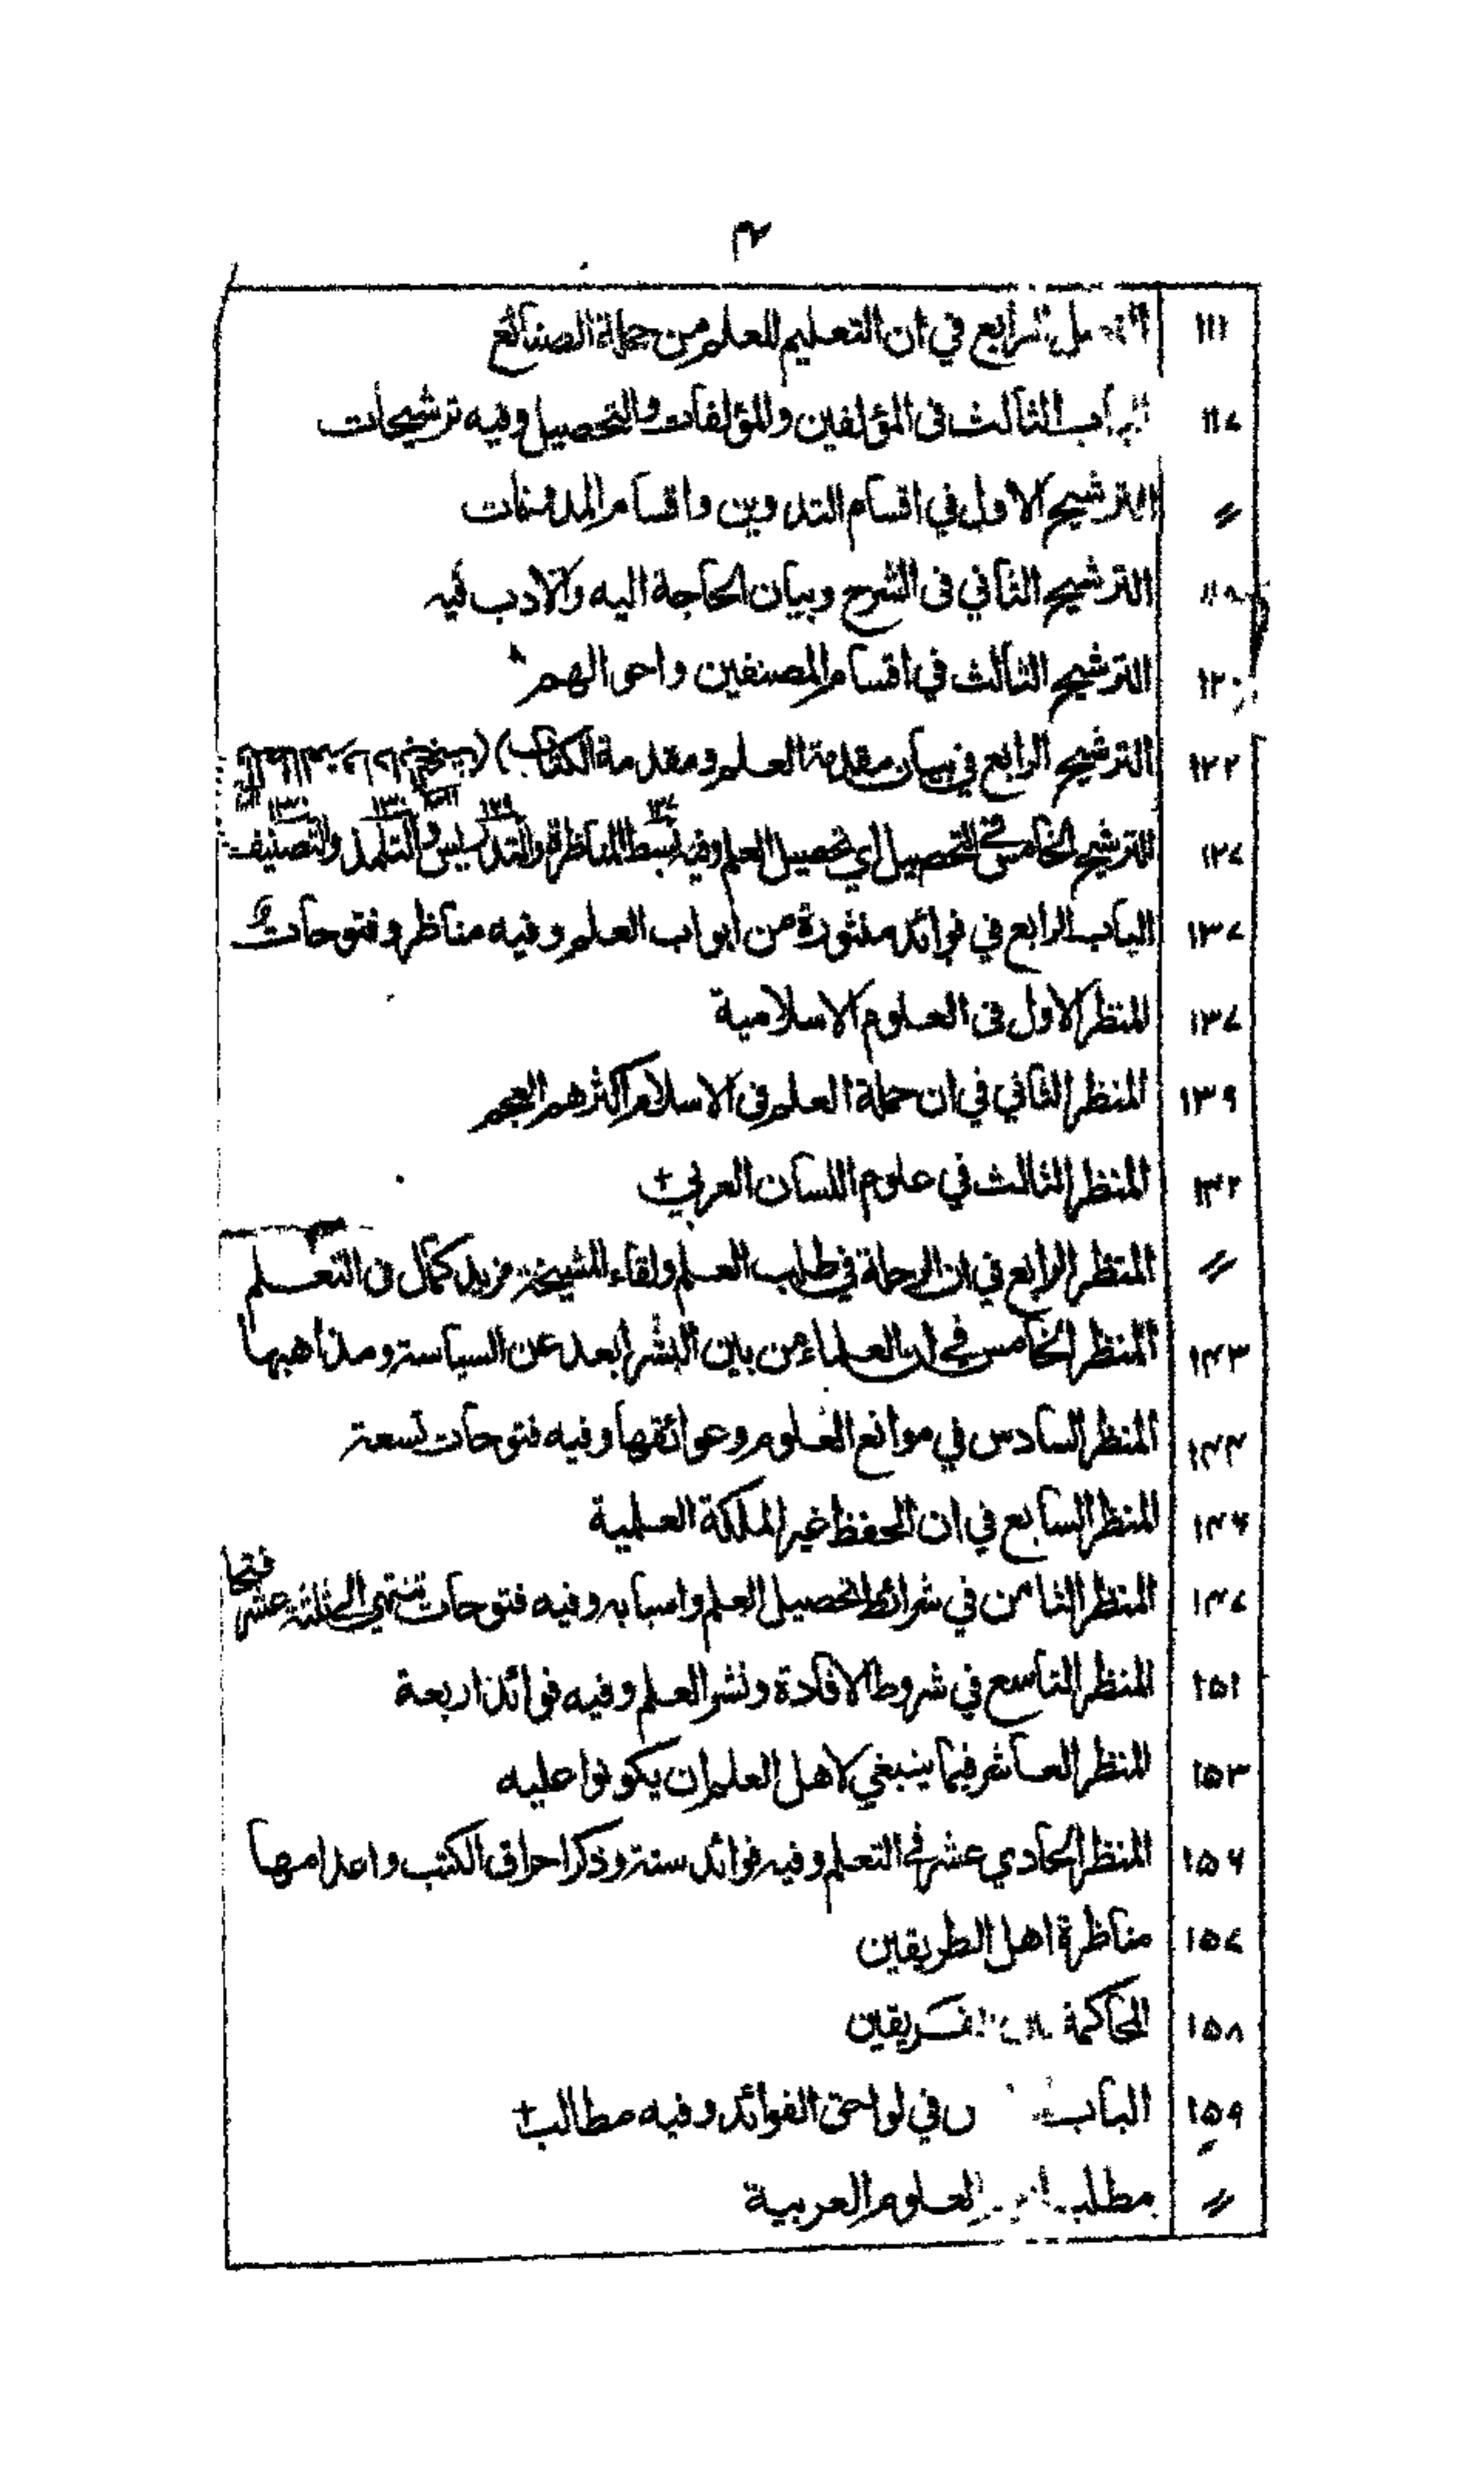 ۴
١١١ الفصل الرابع في ان التعليم للعلم من جملة الصنائع
١١٧ الباب الثالث في المؤلفين والمؤلفات والتحصيل وفيه ترشيحات
〃 الترشيح الاول في اقسام التدوين واقسام المدونات
١١٨ الترشيح الثاني في الشرح وبيان الحاجة اليه والادب فيه
١٢٠ الترشيح الثالث في اقسام المصنفين واحوالهم
١٢٢ الترشيح الرابع في بيان مقدمة العلم ومقدمة الكتاب
١٢٧ الترشيح الخامس في التحصيل اي تحصيل العلم وفيه بسط المناظرة والتدليس والتلمذ والتصنيف
١٣٧ الباب الرابع في فوائد منثورة من ابواب العلم وفيه مناظر وفتوحات
١٣٧ المنظر الاول في العلوم الاسلامية
١٣٩ المنظر الثاني في ان حملة العلم في الاسلام اكثرهم العجم
١٤٢ المنظر الثالث في علوم اللسان العربي +
〃 المنظر الرابع في ان الرحلة في طلب العلم ولقاء المشيخة مزيد كمال في التعلم
١۴٣ المنظر الخامس في ان العلماء من بين البشر ابعد عن السياسة ومذاهبها
١۴۴ المنظر السادس في موانع العلوم وعوائقها وفيه فتوحات تسعة
١۴۶ المنظر السابع في ان الحفظ غير الملكة العلمية
١۴٧ المنظر الثامن في شرائط تحصيل العلم واسبابه وفيه فتوحات تنتهي الى ثلثة عشر فتحا
١۵١ المنظر التاسع في شروط الافادة ونشر العلم وفيه فوائد اربعة
١۵٣ المنظر العاشر فيما ينبغي لاهل العلم ان يكونوا عليه
١۵۶ المنظر الحادي عشر في التعلم وفيه فوائد ستة وذكر احراق الكتب واعدامها
١۵٧ مناظرة اهل الطريقين
١۵٨ المحاكمة الفريقين
١۵٩ الباب في لواحق الفوائد وفيه مطالب +
〃 مطلب العلوم العربية